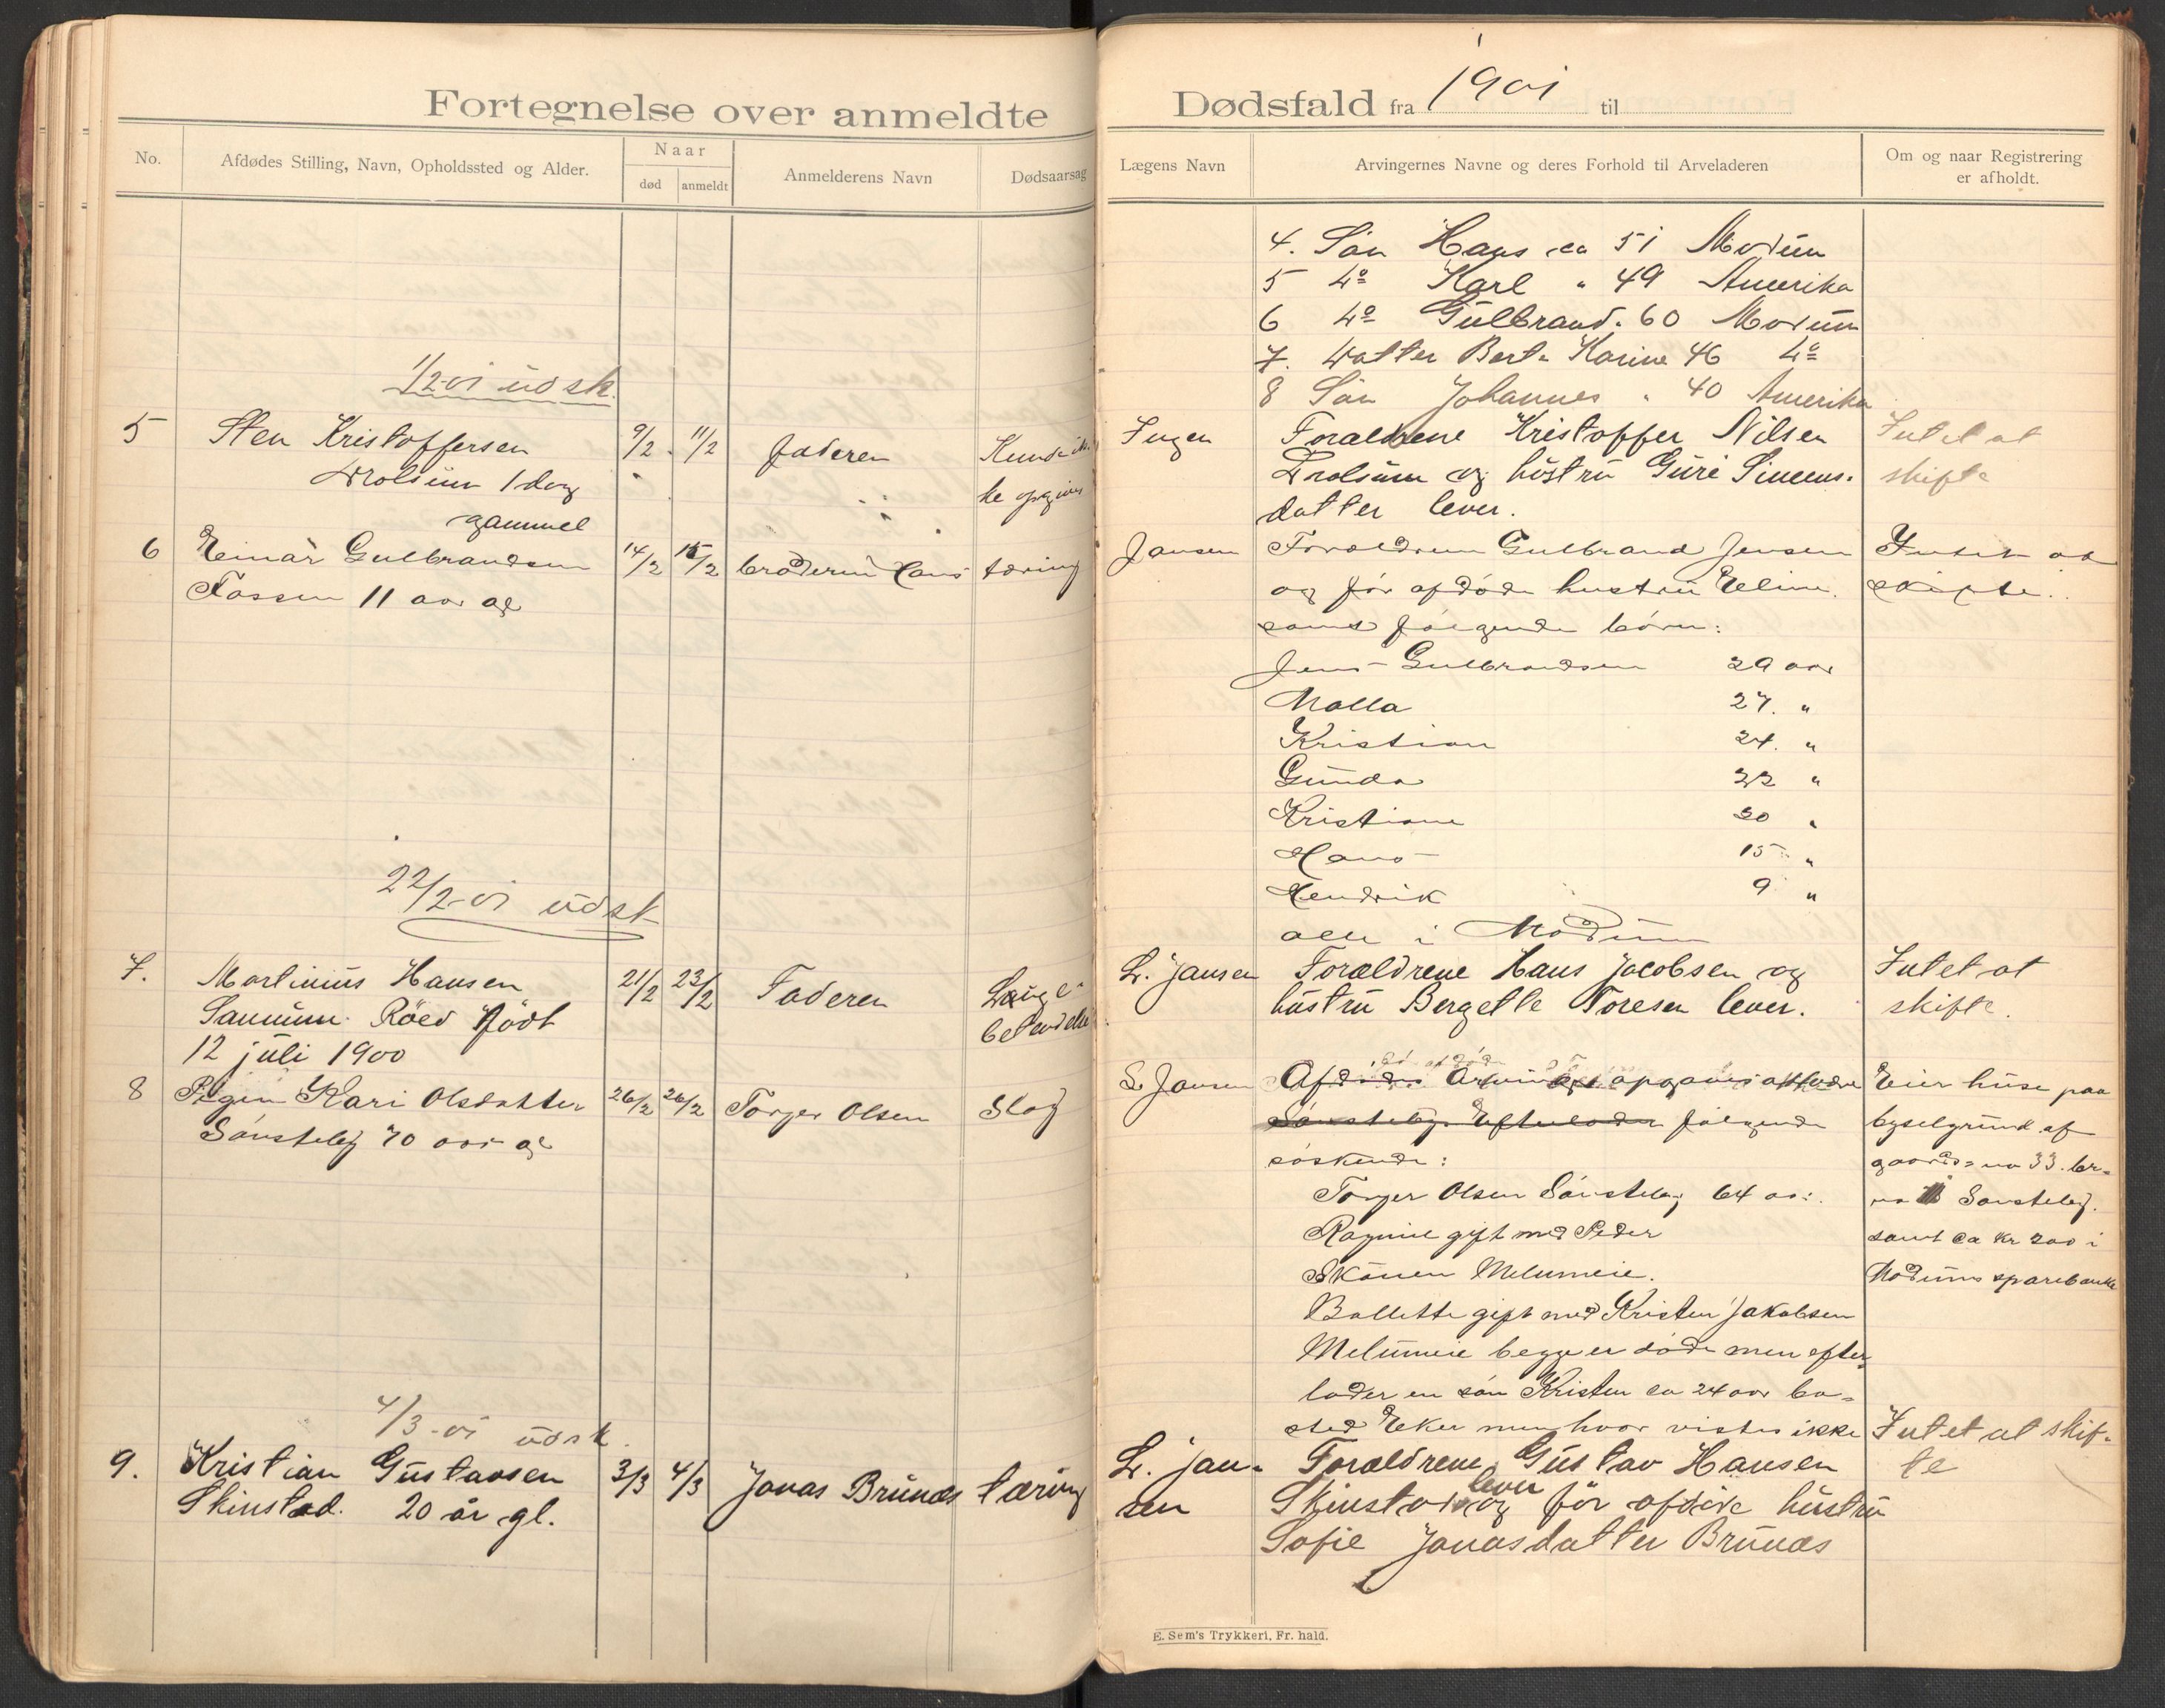 Fortegnelse over anmeldte
No.
Afdødes Stilling, Navn, Opholdssted og Alder.
Naar
død
anmeldt
Anmelderens Navn
Dødsaarsag
1/2-01 udsk.
5 Sten Kristoffersen 9/2 11/2 Faderen Kunde ik-
Drolsum 1 dag ke opgives
gammel
6 Einar Gulbrandsen 14/2 15/2 broderen Hans tæring
Fossen 11 aar gl
22/2-01 udsk
7. Martinius Hansen 21/2 23/2 Faderen Lunge-
Røed født betændelse
12 juli 1900
8 Pigen Kari Olsdatter 26/2 26/2 Torger Olsen Slag
Sønsteby 70 aar gl
4/3-01 udsk.
9. Kristian Gustavsen 3/3 4/3 Jonas Brunæs tæring
Skinstad. 20 år gl.
Dødsfald fra 1901 til
Lægens Navn
Arvingernes Navne og deres Forhold til Arveladeren
Om og naar Registrering
er afholdt.
4. Søn Hans ca 51 Modum
5 do Karl " 49 Amerika
6 do Gulbrand " 60 Modum
7. Datter Berte Karine 46 do
8 Søn Johannes " 40 Amerika
Ingen Forældrene Kristoffer Nilsen Intet at
Drolsum og hustru Guri Simens- skifte
datter lever.
Jansen Forældrene Gulbrand Jensen Intet at
og før afdøde hustru Eline. skifte.
samt følgende børn:
Jens Gulbrandsen 29 aar
Malla 27. "
Kristian 24. "
Gunda 22 "
Kristiane 20 "
Hans 15 "
Hendrik 9 "
alle i Modum
L. Jansen Forældrene Hans Jacobsen og Intet at
hustru Bergette Toresen lever. skifte.
L. Jansen Afdødes Arvinger opgaves Eier huse paa
Sønsteby. Efterlader følgende bygselgrund af
søskende: gaards-no 33. br-
Torger Olsen Sønsteby 64 aar. no Sønsteby.
Ragnil gift med Peder samt ca kr 200 i
Skånen Melumeie. Modums sparebank
Bollette gift med Kristen Jakobsen
Melumeie begge er døde men efter-
lader en søn Kristen ca 24 aar bo-
sted Eker men hvor vistes ikke
L. Jan- Forældrene Gustav Hansen Intet at skif-
sen Skinstad lever og før afdøde hustru te
Sofie Jonasdatter Brunæs
E. Sem's Trykkeri, Fr. hald.